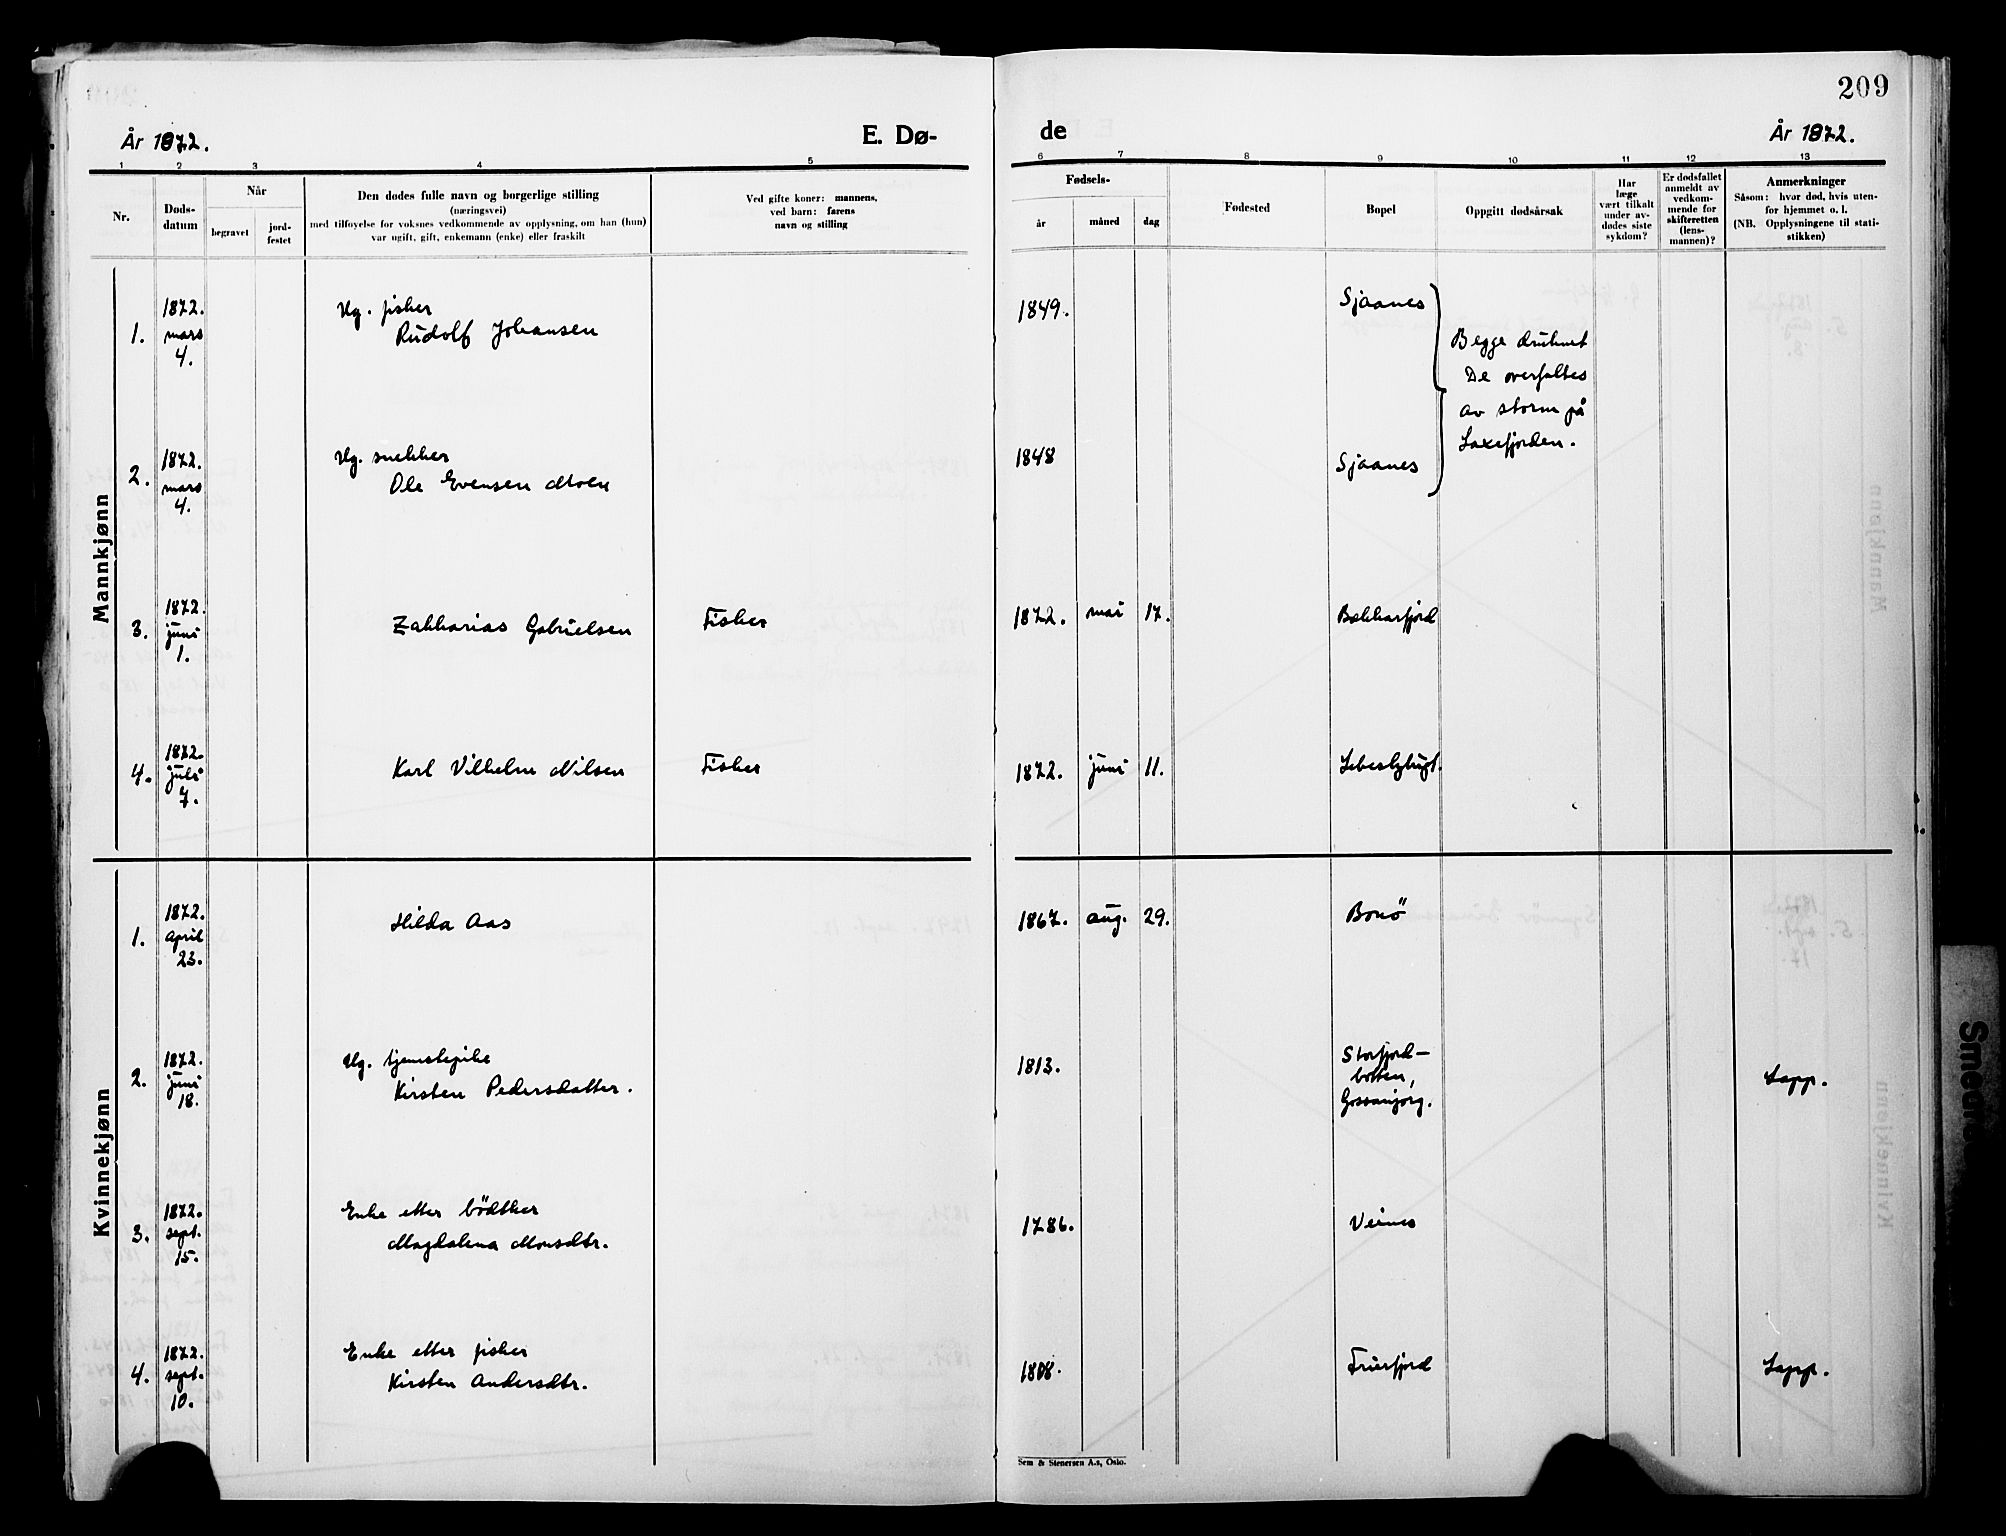 209
År 1872.
E. Dø-
de
År 1872.
1 2 3 4 5
6 7 8 9 10 11 12 13
Nr.
Døds-
datum
Når
begravet
jord-
festet
Den dødes fulle navn og borgerlige stilling
(næringsvei)
med tilføyelse for voksnes vedkommende av opplysning, om han (hun)
var ugift, gift, enkemann (enke) eller fraskilt
Ved gifte koner: mannens,
ved barn: farens
navn og stilling
Fødsels-
år
måned
dag
Fødested
Bopel
Oppgitt dødsårsak
Har
læge
vært tilkalt
under av-
dødes siste
sykdom?
Er dødsfallet
anmeldt av
vedkom-
mende for
skifteretten
(lens-
mannen)?
Anmerkninger
Såsom: hvor død, hvis uten-
for hjemmet o. l.
(NB. Opplysningene til stati-
stikken)
Mannkjønn
1.
1872.
mars
4.
Ug. fisker
Rudolf Johansen
1849.
Sjaanes
Begge druknet
De overfaltes
av storm på
Laxefjorden.
2.
1872.
mars
4.
Ug. snekker
Ole Evensen Moen
1848
Sjaanes
3.
1872.
juni
1.
Zakkarias Gabrielsen
Fisker
1872. mai 17.
Bekkarfjord
4.
1872.
juli
7.
Karl Vilhelm Nilsen
Fisker
1872. juni 11.
Lebesbybugt.
Kvinnekjønn
1.
1872.
april
23.
Hilda Aas
1867. aug. 29.
2.
1872.
juni
18.
Ug. tjenestepike
Kirsten Pedersdatter.
1813.
Storfjord-
botten,
Lapp.
3.
1872.
sept.
15.
Enke etter bødtker
Magdalena Monsdtr.
1786.
Veines
4.
1872.
sept.
10.
Enke etter fisker
Kirsten Andersdtr.
1808.
Friarfjord
Lapp.
Sem & Stenersen A.s, Oslo.